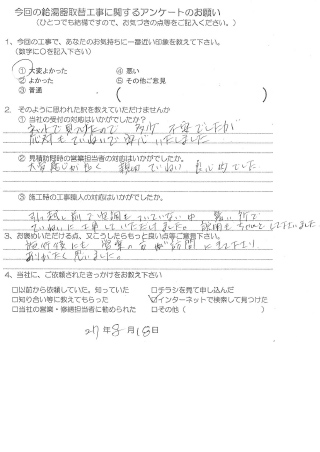 今回の給湯器取替工事に関するアンケートのお願い
（ひとつでも結構ですので、お気づきの点等をご記入ください。）
1、今回の工事で、あなたのお気持ちに一番近い印象を教えて下さい。
（数字に○を記入下さい）
① 大変よかった ④ 悪い
② よかった ⑤ その他ご意見
③ 普通 （
2. そのように思われた訳を教えていただけませんか
① 当社の受付の対応はいかがでしたか？
ネットで見つけたので 多少 不安でしたが
応対もていねいで安心いたしました
② 見積訪問時の営業担当者の対応はいかがでしたか。
大変感じが良く 親切でていねい 良心的でした。
③ 施工時の工事職人の対応はいかがでしたか。
引越し前で空調もついていない中 暑い所で
ていねいに工事していただけました。 説明もちゃんとして下さいました
3、お褒めいただける点、又こうしたらもっと良い点等ご意見下さい。
施行後にも 営業の方が訪問に来て下さり
ありがたく思いました。
4、当社に、ご依頼されたきっかけをお教え下さい
□以前から依頼していた。知っていた □チラシを見て申し込んだ
□知り合い等に教えてもらった ☑インターネットで検索して見つけた
□当社の営業・修繕担当者に勧められた □その他（ ）
27年8月18日